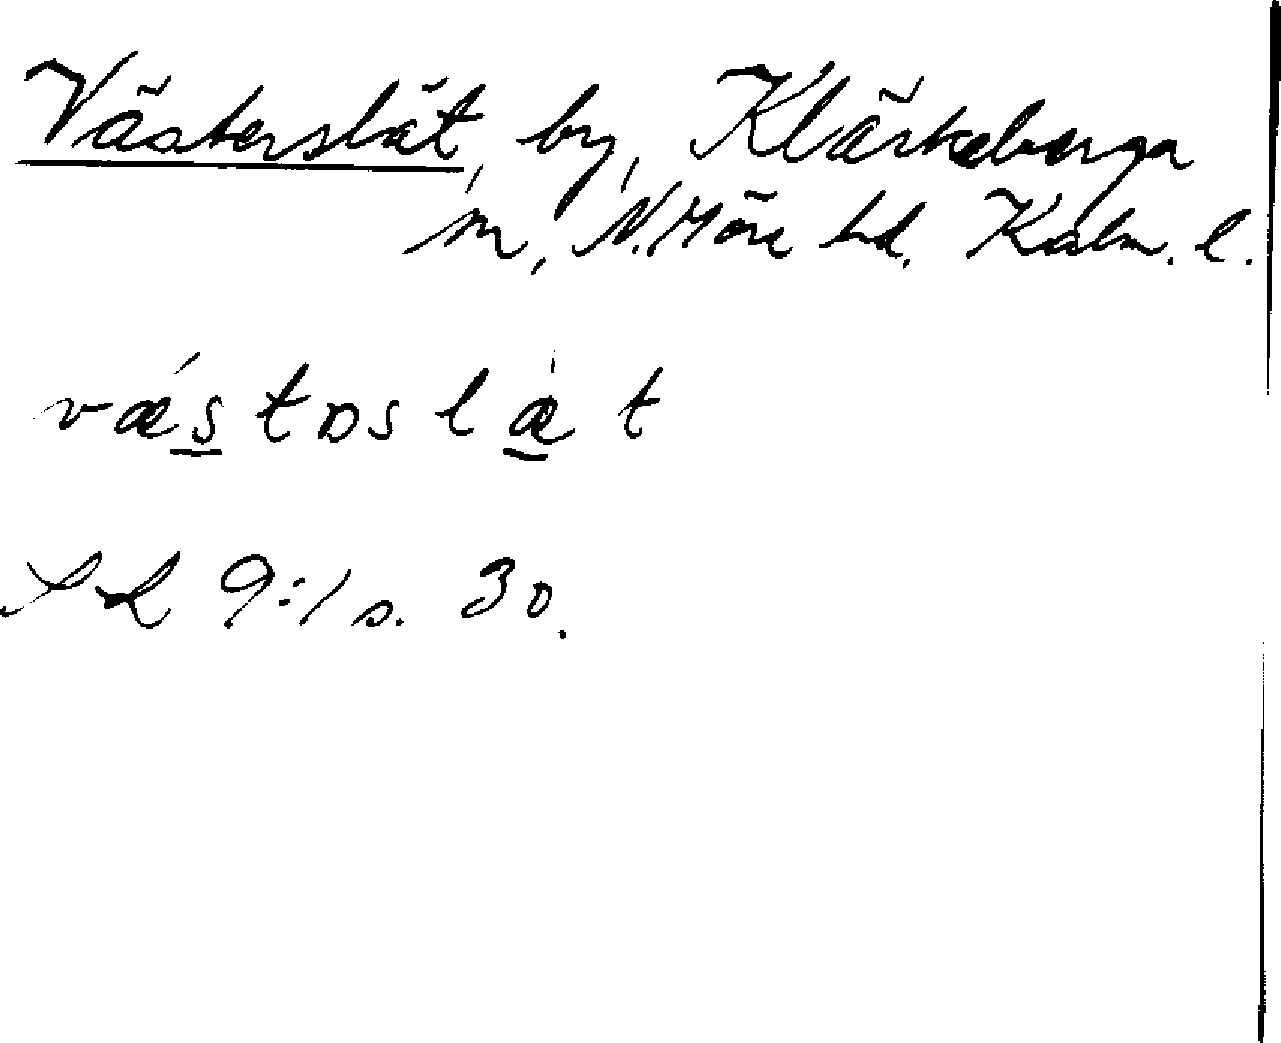 Västerslät, by, Kläckeberga
sn, N. Möre hd. Kalm. l.
væ´stɒslæ`t
SL 9:1 s. 30.